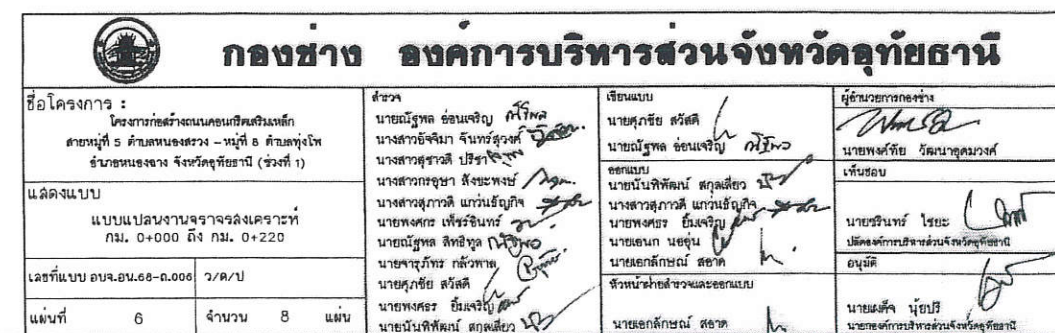 กองช่าง องค์การบริหารส่วนจังหวัดอุทัยธานี
ชื่อโครงการ :
โครงการก่อสร้างถนนคอนกรีตเสริมเหล็ก
สายหมู่ที่ 5 ตำบลหนองสรวง – หมู่ที่ 8 ตำบลทุ่งโพ
อำเภอหนองฉาง จังหวัดอุทัยธานี (ช่วงที่ 1)
แสดงแบบ
แบบแปลนงานจราจรสงเคราะห์
กม. 0+000 ถึง กม. 0+220
เลขที่แบบ อบจ.อน.68-ถ.006 ว/ด/ป
แผ่นที่ 6 จำนวน 8 แผ่น
สำรวจ
นายณัฐพล อ่อนเจริญ
นางสาวอัจจิมา จันทร์สุวงศ์
นางสาวสุชาวดี ปรีชา
นางสาวกรอุษา สังขะพงษ์
นางสาวสุภาวดี แกว่นธัญกิจ
นายพงศกร เพ็ชร์อินทร์
นายณัฐพล สิทธิทูล
นายจารุภัทร กลัวพาล
นายศุภชัย สวัสดี
นายพงศธร ยิ้มเจริญ
นายนันพิพัฒน์ สกุลเลี่ยว
เขียนแบบ
นายศุภชัย สวัสดี
นายณัฐพล อ่อนเจริญ
ออกแบบ
นายนันพิพัฒน์ สกุลเลี่ยว
นางสาวสุภาวดี แกว่นธัญกิจ
นายพงศธร ยิ้มเจริญ
นายเอนก นออุ่น
นายเอกลักษณ์ สอาด
หัวหน้าฝ่ายสำรวจและออกแบบ
นายเอกลักษณ์ สอาด
ผู้อำนวยการกองช่าง
นายพงศ์ทัย วัฒนาอุดมวงศ์
เห็นชอบ
นายชรินทร์ ไชยะ
ปลัดองค์การบริหารส่วนจังหวัดอุทัยธานี
อนุมัติ
นายเผด็จ นุ้ยปรี
นายกองค์การบริหารส่วนจังหวัดอุทัยธานี